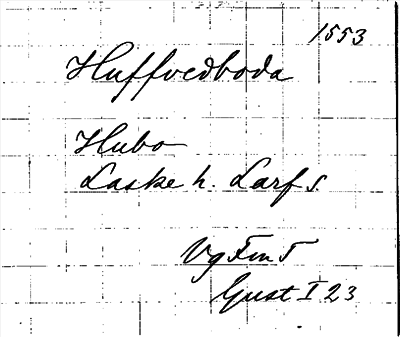 1553
Huffvedboda
Hubo
Laske h. Larss
Vg Fm T
Gust I 23